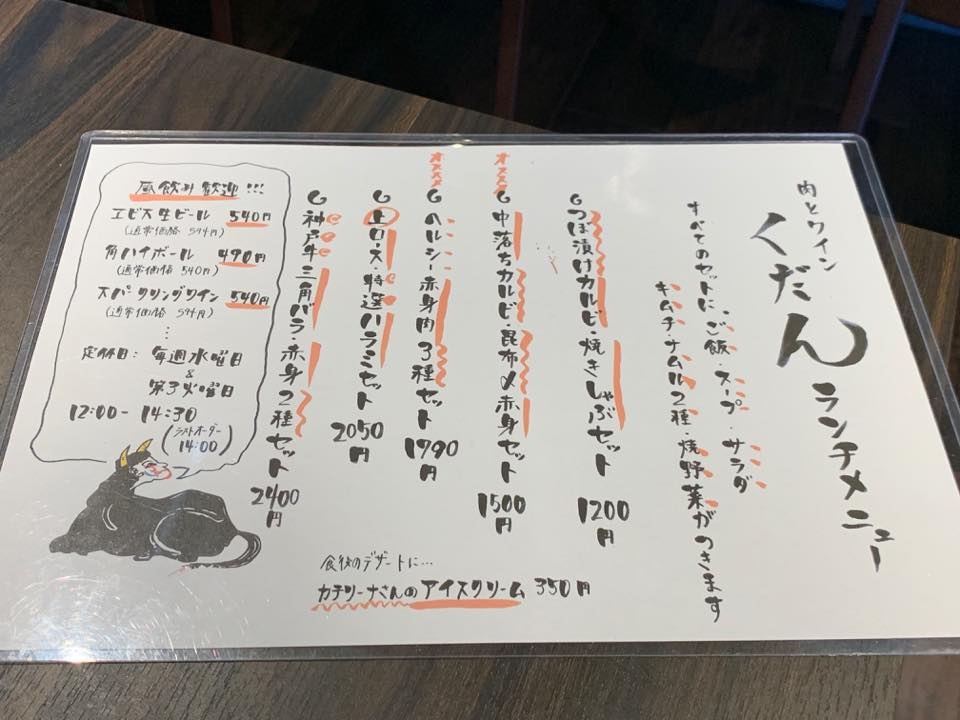 肉とワイン
くだん ランチメニュー
すべてのセットに、ご飯・スープ・サラダ
キムチ・ナムル2種・焼野菜がつきます
つぼ漬けカルビ・焼きしゃぶセット 1200円
オススメ
中落ちカルビ・昆布〆赤身セット 1500円
オススメ
ヘルシー赤身肉3種セット 1790円
上ロース・特選ハラミセット 2050円
神戸牛三角バラ・赤身2種セット 2400円
食後のデザートに…
カテリーナさんのアイスクリーム 350円
昼飲み歓迎!!!
エビス生ビール 540円
(通常価格 594円)
角ハイボール 490円
(通常価格 540円)
スパークリングワイン 540円
(通常価格 594円)
⋮
定休日: 毎週水曜日
&
第3火曜日
12:00- 14:30
(ラストオーダー
14:00)